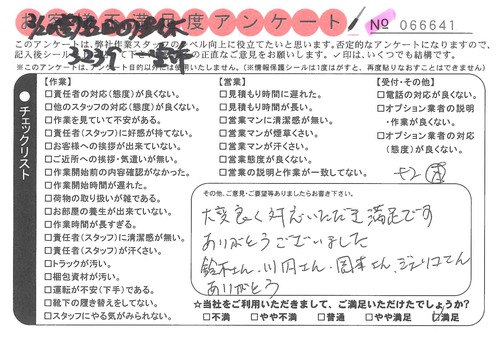 お客様不満足度アンケート
No 066641
このアンケートは、弊社作業スタッフのレベル向上に役立てたいと思います。否定的なアンケートになりますので、
記入後シール
の正直なご意見をお願いします。✓印は、いくつでも結構です。
※このアンケートは、アンケート目的以外には使用いたしません。(※情報保護シールは1度はがすと、再度貼りなおすことはできません)
チェックリスト
【作業】
□責任者の対応(態度)が良くない。
□他のスタッフの対応(態度)が良くない。
□作業を見ていて不安がある。
□責任者(スタッフ)に好感が持てない。
□お客様への挨拶が出来ていない。
□ご近所への挨拶・気遣いが無い。
□作業開始前の内容確認がなかった。
□作業開始時間が遅れた。
□荷物の取り扱いが雑である。
□お部屋の養生が出来ていない。
□作業時間が長すぎる。
□責任者(スタッフ)に清潔感が無い。
□責任者(スタッフ)が汗くさい。
□トラックが汚い。
□梱包資材が汚い。
□運転が不安(下手)である。
□靴下の履き替えをしてない。
□スタッフにやる気がみられない。
【営業】
□見積もり時間に遅れた。
□見積もり時間が長い。
□営業マンに清潔感が無い。
□営業マンが煙草くさい。
□営業マンが汗くさい。
□営業態度が良くない。
□営業の説明と作業が一致してない。
【受付・その他】
□電話の対応が良くない。
□オプション業者の説明
・作業が良くない。
□オプション業者の対応
(態度)が良くない。
その他、ご意見・ご要望等ありましたらお書き下さい。
大変良く対応いただき満足です
ありがとうございました
鈴木さん、川円さん、岡本さん、
ありがとう
☆当社をご利用いただきまして、ご満足いただけたでしょうか?
□不満 □やや不満 □普通 □やや満足 ☑満足